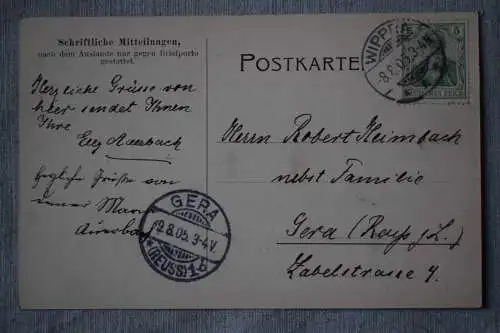 Schriftliche Mitteilungen,
nach dem Auslande nur gegen Briefporto
gestattet.
Herzliche Grüsse von
hier sendet Ihnen
Ihre
Auerbach
herzliche Grüße von
Mann
Auerbach
POSTKARTE
WIPP
8.8.05.3-4
5
DEUTSCHES REICH
Herrn Robert Heimbach
nebst Familie
Gera (Reuß j.L.)
Zabelstrasse 4.
GERA
9.8.05.3-4V.
*(REUSS)1*